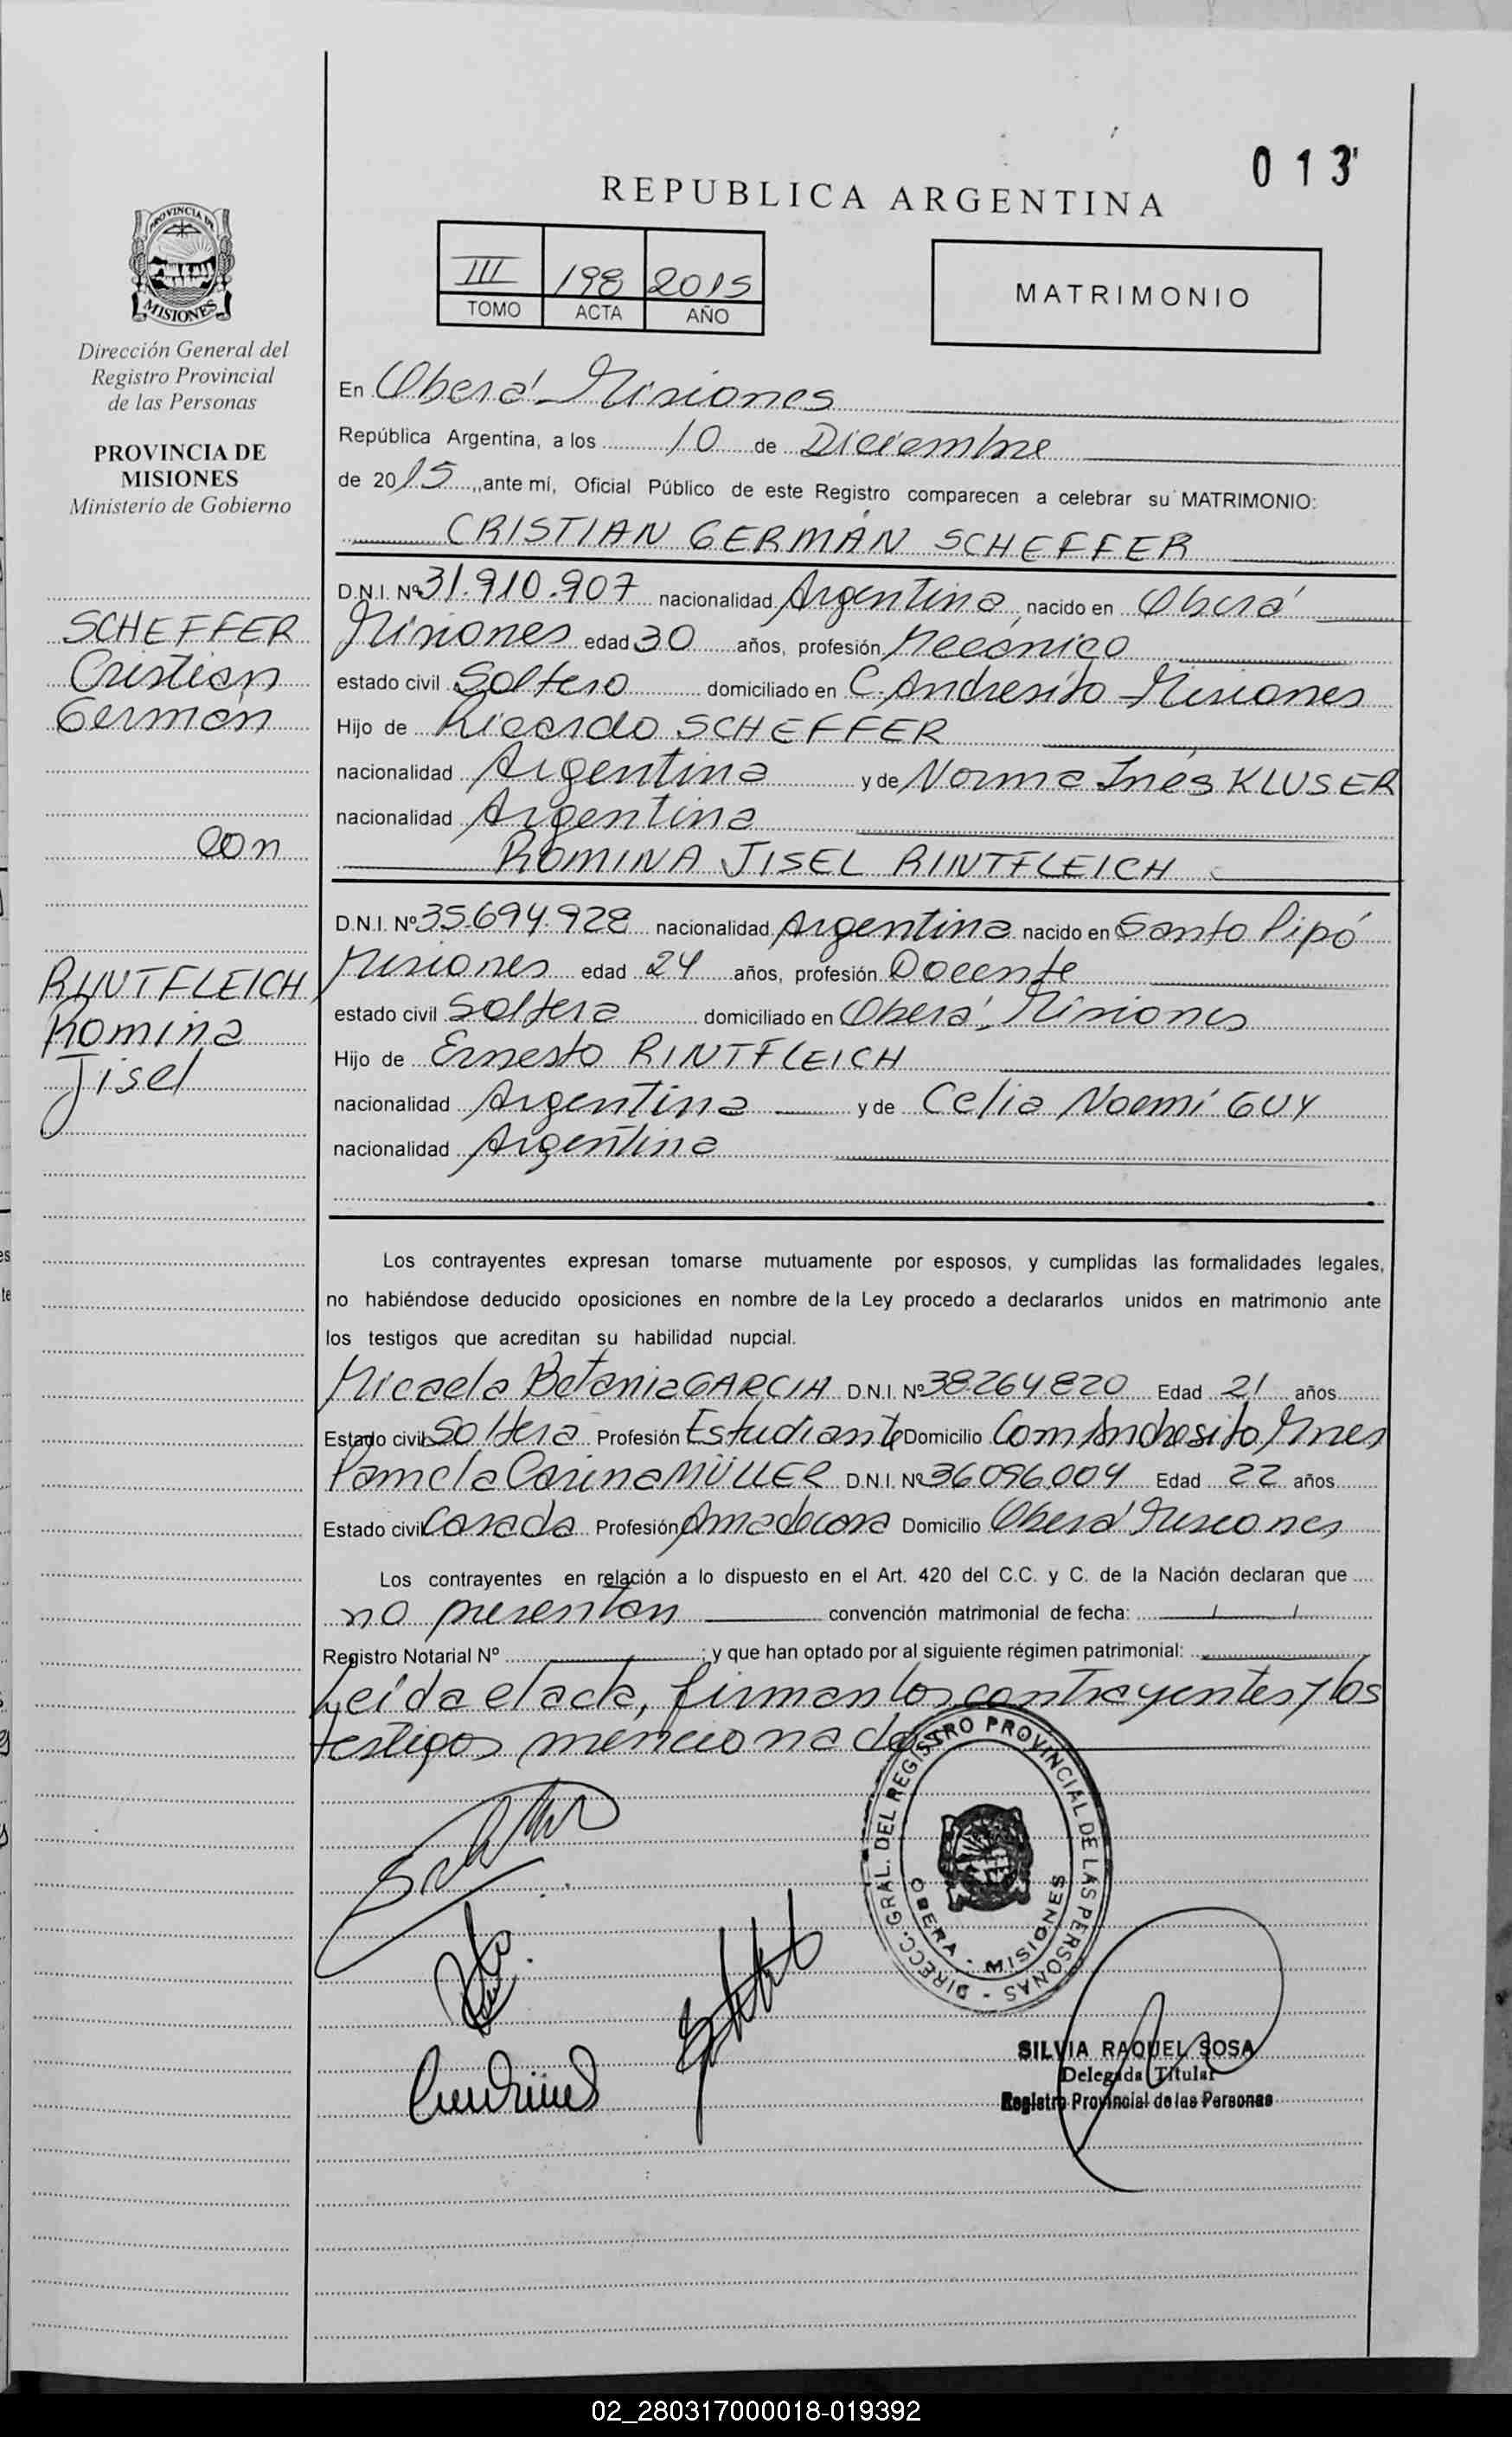 013
REPUBLICA ARGENTINA
III 198 2015
TOMO ACTA AÑO
MATRIMONIO
PROVINCIA DE
MISIONES
Dirección General del
Registro Provincial
de las Personas
PROVINCIA DE
MISIONES
Ministerio de Gobierno
SCHEFFER
Cristian
Germán
con
RINTFLEICH
Romina
Jisel
En Oberá Misiones
República Argentina, a los 10 de Diciembre
de 2015, ante mí, Oficial Público de este Registro comparecen a celebrar su MATRIMONIO:
CRISTIAN GERMÁN SCHEFFER
D.N.I. Nº 31.910.907 nacionalidad Argentina, nacido en Oberá
Misiones edad 30 años, profesión Mecánico
estado civil Soltero domiciliado en C. Andresito - Misiones
Hijo de Ricardo SCHEFFER
nacionalidad Argentina y de Norma Inés KLUSER
nacionalidad Argentina
ROMINA JISEL RINTFLEICH
D.N.I. Nº 35.694.928 nacionalidad Argentina nacido en Santo Pipó
Misiones edad 24 años, profesión Docente
estado civil Soltera domiciliado en Oberá - Misiones
Hijo de Ernesto RINTFLEICH
nacionalidad Argentina y de Celia Noemí GUY
nacionalidad Argentina
Los contrayentes expresan tomarse mutuamente por esposos, y cumplidas las formalidades legales,
no habiéndose deducido oposiciones en nombre de la Ley procedo a declararlos unidos en matrimonio ante
los testigos que acreditan su habilidad nupcial.
Micaela Betania GARCIA D.N.I. Nº 38.264.820 Edad 21 años
Estado civil Soltera Profesión Estudiante Domicilio Com Andresito Mnes
Pamela Carina MÜLLER D.N.I. Nº 36.096.004 Edad 22 años
Estado civil Casada Profesión Ama de casa Domicilio Oberá Misiones
Los contrayentes en relación a lo dispuesto en el Art. 420 del C.C. y C. de la Nación declaran que
no presentan convención matrimonial de fecha: / /
Registro Notarial Nº ; y que han optado por al siguiente régimen patrimonial:
Leída el acta, firman los contrayentes y los
testigos mencionados
DIRECC. GRAL. DEL REGISTRO PROVINCIAL DE LAS PERSONAS -
OBERA - MISIONES
SILVIA RAQUEL SOSA
Delegada Titular
Registro Provincial de las Personas
02_280317000018-019392